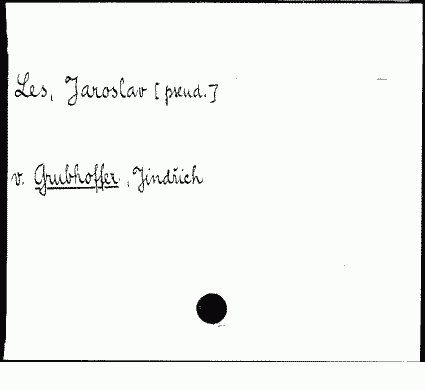 Les, Jaroslav [pseud.]
v. Grubhoffer, Jindřich